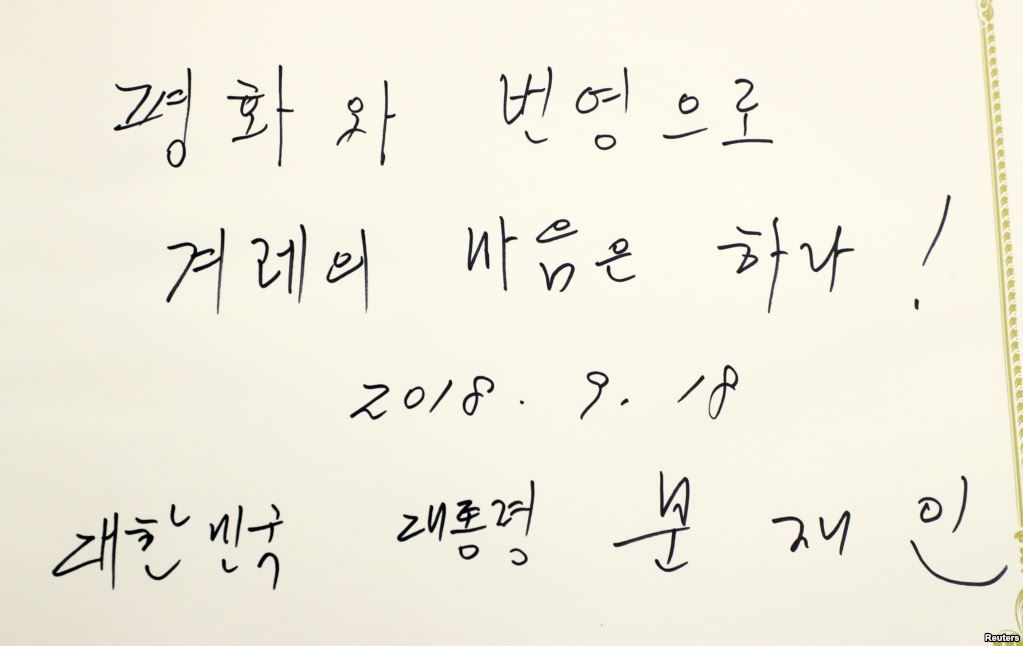 평화와 번영으로
겨레의 마음은 하나!
2018. 9. 18
대한민국 대통령 문재인
Reuters